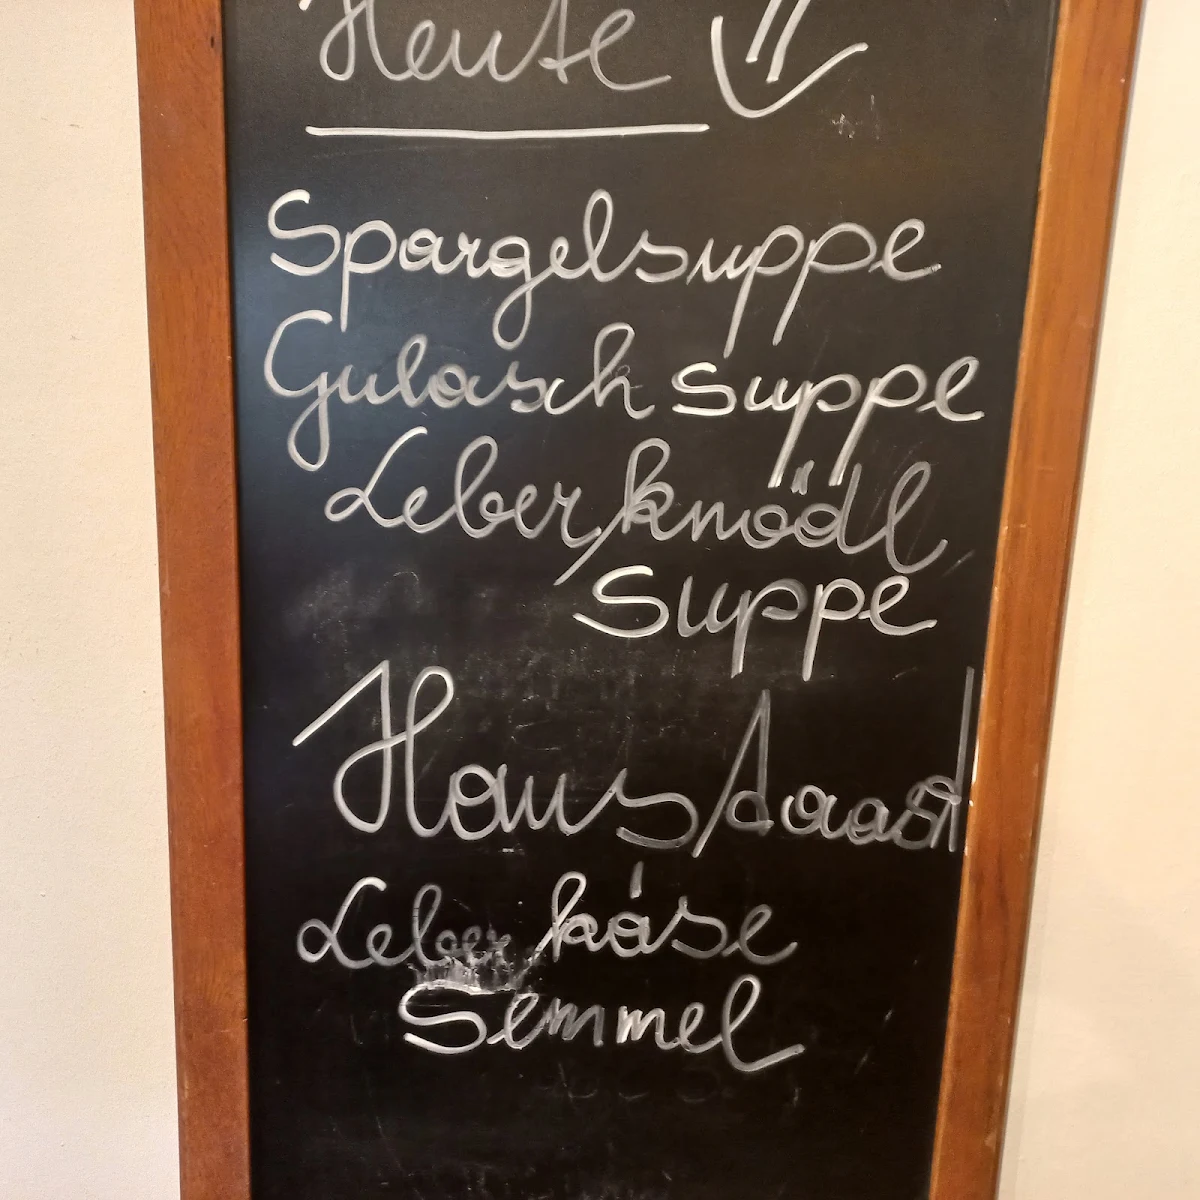 Heute
Spargelsuppe
Gulasch suppe
Leberknödl
Suppe
Haustoast
Leberkáse
Semmel